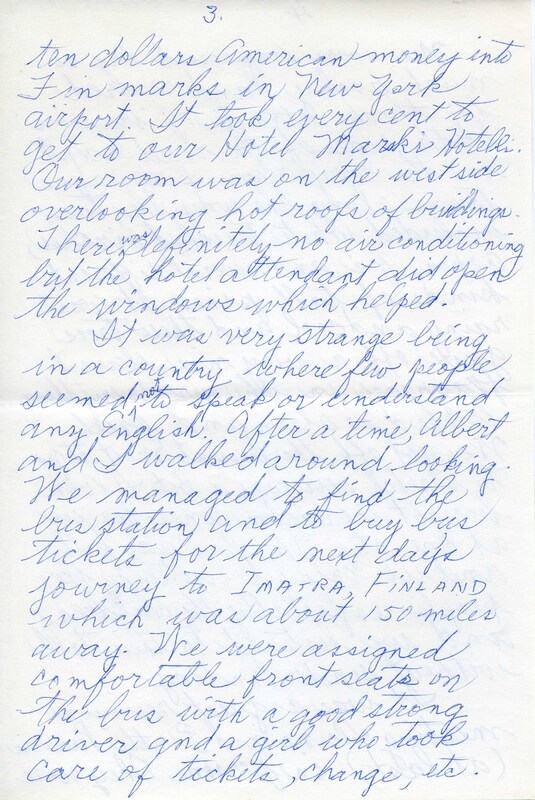 3.
ten dollars American money into
Fin marks in New York
airport. It took every cent to
get to our Hotel Marski Hotelli.
Our room was on the west side
overlooking hot roofs of buildings.
There was definitely no air conditioning
but the hotel attendant did open
the windows which helped.
It was very strange being
in a country where few people
seemed not to speak or understand
any English. After a time, Albert
and I walked around looking.
We managed to find the
bus station and to buy bus
tickets for the next days
journey to IMATRA, FINLAND
which was about 150 miles
away. We were assigned
comfortable front seats on
the bus with a good strong
driver and a girl who took
care of tickets, change, etc.